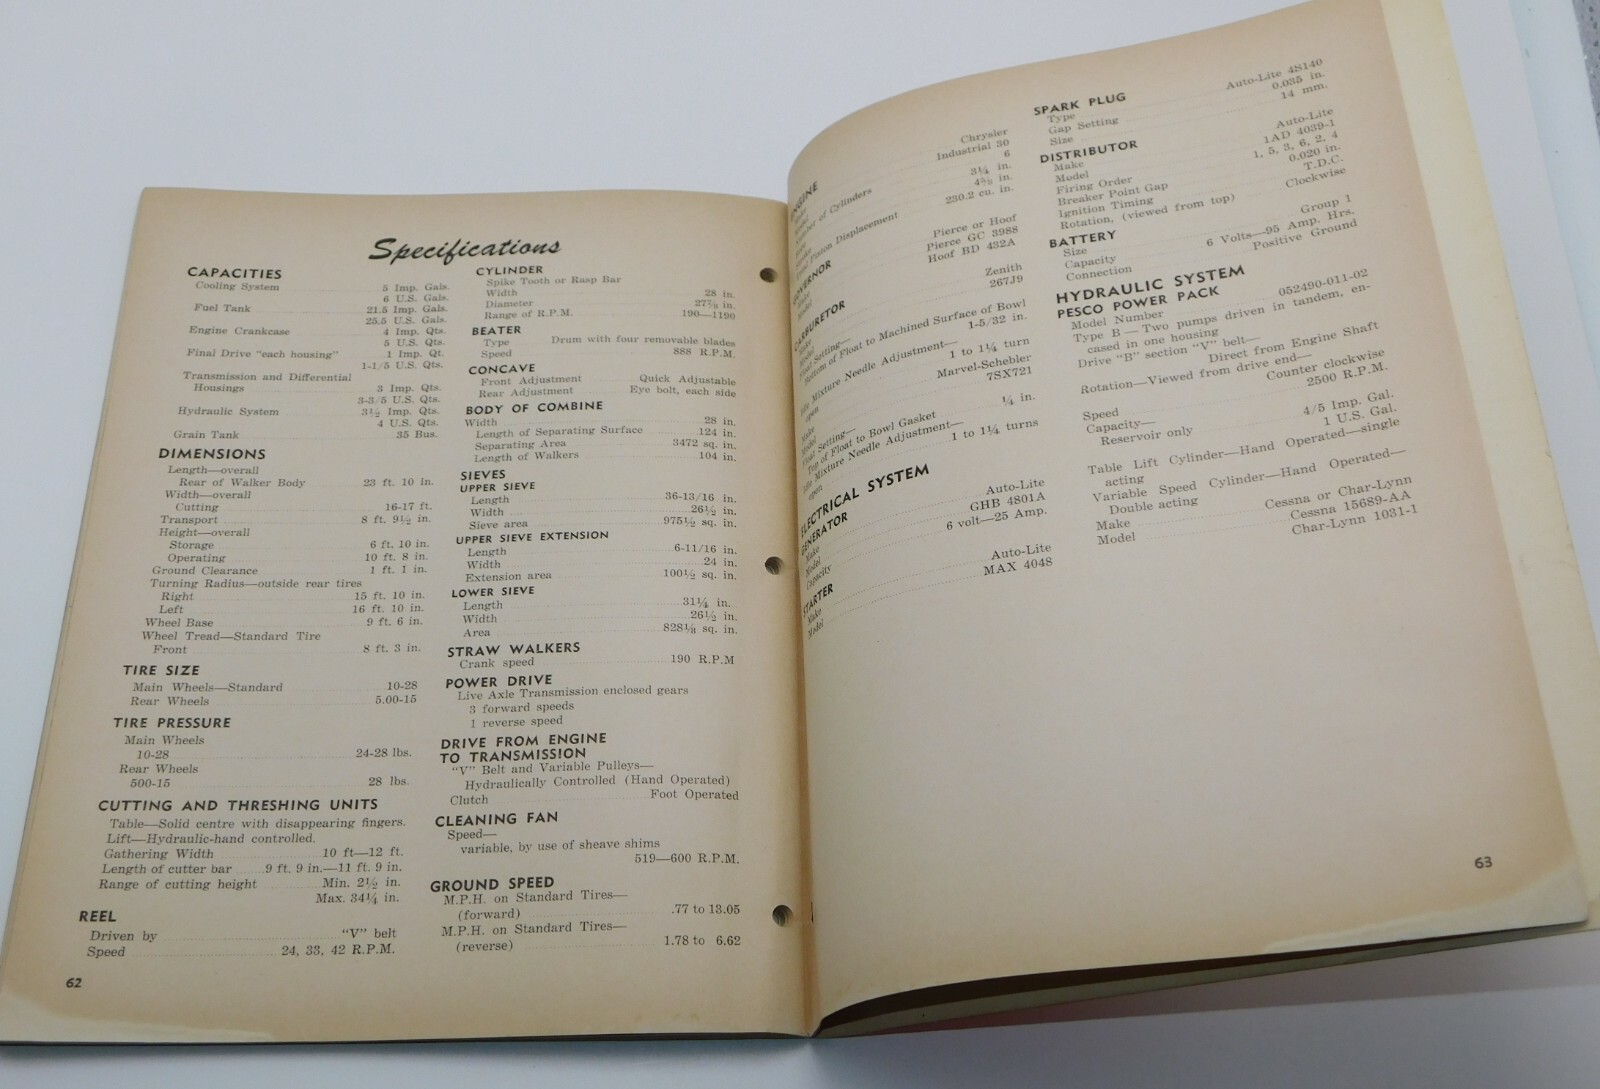 Specifications
CAPACITIES
Cooling System 5 Imp. Gals.
6 U.S. Gals.
Fuel Tank 21.5 Imp. Gals.
25.5 U.S. Gals.
Engine Crankcase 4 Imp. Qts.
5 U.S. Qts.
Final Drive "each housing" 1 Imp. Qt.
1-1/5 U.S. Qts.
Transmission and Differential
Housings 3 Imp. Qts.
3-3/5 U.S. Qts.
Hydraulic System 3½ Imp. Qts.
4 U.S. Qts.
Grain Tank 35 Bus.
DIMENSIONS
Length—overall
Rear of Walker Body 23 ft. 10 in.
Width—overall
Cutting 16-17 ft.
Transport 8 ft. 9½ in.
Height—overall
Storage 6 ft. 10 in.
Operating 10 ft. 8 in.
Ground Clearance 1 ft. 1 in.
Turning Radius—outside rear tires
Right 15 ft. 10 in.
Left 16 ft. 10 in.
Wheel Base 9 ft. 6 in.
Wheel Tread—Standard Tire
Front 8 ft. 3 in.
TIRE SIZE
Main Wheels—Standard 10-28
Rear Wheels 5.00-15
TIRE PRESSURE
Main Wheels
10-28 24-28 lbs.
Rear Wheels
500-15 28 lbs.
CUTTING AND THRESHING UNITS
Table—Solid centre with disappearing fingers.
Lift—Hydraulic-hand controlled.
Gathering Width 10 ft—12 ft.
Length of cutter bar 9 ft. 9 in.—11 ft. 9 in.
Range of cutting height Min. 2½ in.
Max. 34¼ in.
REEL
Driven by "V" belt
Speed 24, 33, 42 R.P.M.
62
CYLINDER
Spike Tooth or Rasp Bar
Width 28 in.
Diameter 27⅞ in.
Range of R.P.M. 190—1190
BEATER
Type Drum with four removable blades
Speed 888 R.P.M.
CONCAVE
Front Adjustment Quick Adjustable
Rear Adjustment Eye bolt, each side
BODY OF COMBINE
Width 28 in.
Length of Separating Surface 124 in.
Separating Area 3472 sq. in.
Length of Walkers 104 in.
SIEVES
UPPER SIEVE
Length 36-13/16 in.
Width 26½ in.
Sieve area 975½ sq. in.
UPPER SIEVE EXTENSION
Length 6-11/16 in.
Width 24 in.
Extension area 100½ sq. in.
LOWER SIEVE
Length 31¼ in.
Width 26½ in.
Area 828⅛ sq. in.
STRAW WALKERS
Crank speed 190 R.P.M
POWER DRIVE
Live Axle Transmission enclosed gears
3 forward speeds
1 reverse speed
DRIVE FROM ENGINE
TO TRANSMISSION
"V" Belt and Variable Pulleys—
Hydraulically Controlled (Hand Operated)
Clutch Foot Operated
CLEANING FAN
Speed—
variable, by use of sheave shims
519—600 R.P.M.
GROUND SPEED
M.P.H. on Standard Tires—
(forward) .77 to 13.05
M.P.H. on Standard Tires—
(reverse) 1.78 to 6.62
ENGINE
Chrysler
Industrial 30
Number of Cylinders 6
3¼ in.
in.
Piston Displacement 230.2 cu. in.
GOVERNOR
Make Pierce or Hoof
Model Pierce GC 3988
Hoof BD 432A
CARBURETOR
Make Zenith
Model 267J9
Float Setting—
Bottom of Float to Machined Surface of Bowl
1-5/32 in.
Idle Mixture Needle Adjustment—
open 1 to 1¼ turn
Make Marvel-Schebler
Model 7SX721
Float Setting—
Top of Float to Bowl Gasket ¼ in.
Idle Mixture Needle Adjustment—
open 1 to 1¼ turns
ELECTRICAL SYSTEM
GENERATOR
Make Auto-Lite
Model GHB 4801A
Capacity 6 volt—25 Amp.
STARTER
Make Auto-Lite
Model MAX 4048
SPARK PLUG
Type Auto-Lite 4S140
Gap Setting 0.035 in.
Size 14 mm.
DISTRIBUTOR
Make Auto-Lite
Model 1AD 4039-1
Firing Order 1, 5, 3, 6, 2, 4
Breaker Point Gap 0.020 in.
Ignition Timing T.D.C.
Rotation, (viewed from top) Clockwise
BATTERY
Size Group 1
Capacity 6 Volts—95 Amp. Hrs.
Connection Positive Ground
HYDRAULIC SYSTEM
PESCO POWER PACK
Model Number 052490-011-02
Type B — Two pumps driven in tandem, en-
cased in one housing
Drive "B" section "V" belt—
Direct from Engine Shaft
Rotation—Viewed from drive end—
Counter clockwise
Speed 2500 R.P.M.
Capacity—
Reservoir only 4/5 Imp. Gal.
1 U.S. Gal.
Table Lift Cylinder—Hand Operated—single
acting
Variable Speed Cylinder—Hand Operated—
Double acting
Make Cessna or Char-Lynn
Model Cessna 15689-AA
Char-Lynn 1031-1
63